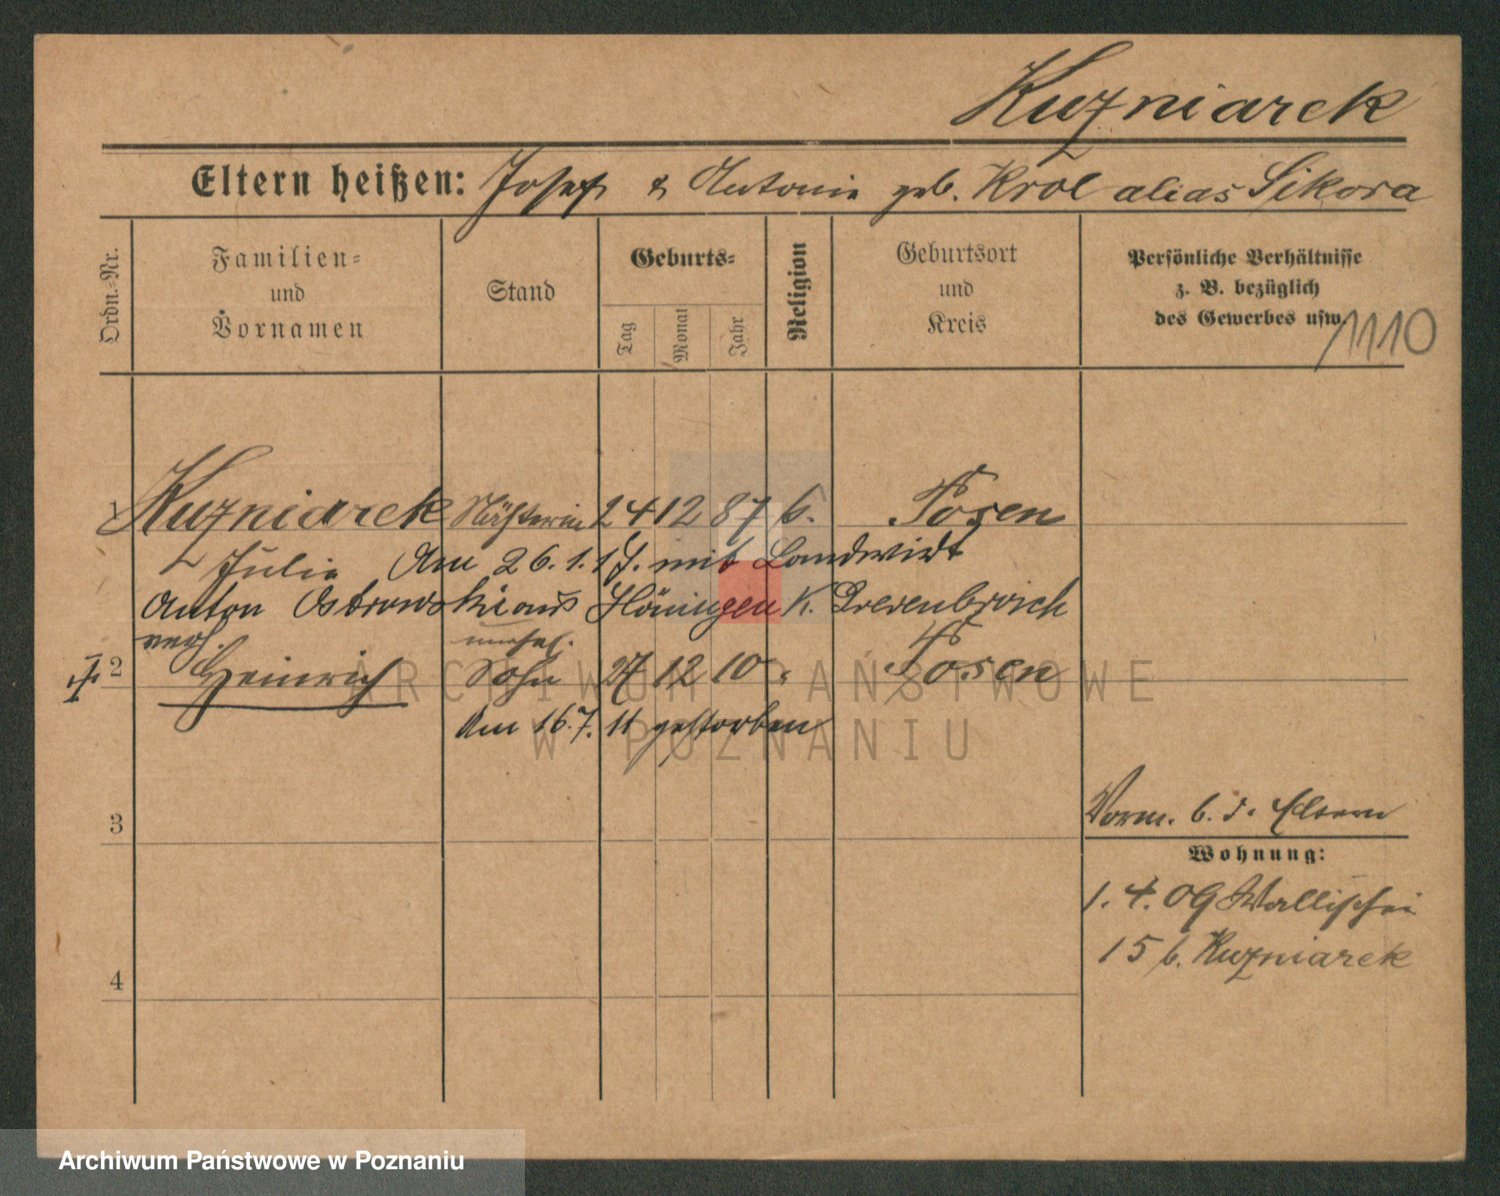 Kuzniarek
Eltern heißen: Josef & Antonie geb. Krol alias Sikora
Ordn.-Nr.
Familien- und Vornamen
Stand
Geburts-
Tag
Monat
Jahr
Religion
Geburtsort und Kreis
Persönliche Verhältnisse
z. B. bezüglich
des Gewerbes usw.
1110
1 Kuzniarek Nähterin 24 12 87 k. Posen
Julie Am 26. 1. mit Landwirt
Anton Ostrowski aus Höningen K. Grevenbroich
verh.
unehel.
2 Heinrich Sohn 27 12 10 " Posen
Am 16.7.11 gestorben
3
Vorm. b. d. Eltern
Wohnung:
1.4.09 Wallischei
15 b. Kuzniarek
4
ARCHIWUM PAŃSTWOWE
W POZNANIU
Archiwum Państwowe w Poznaniu